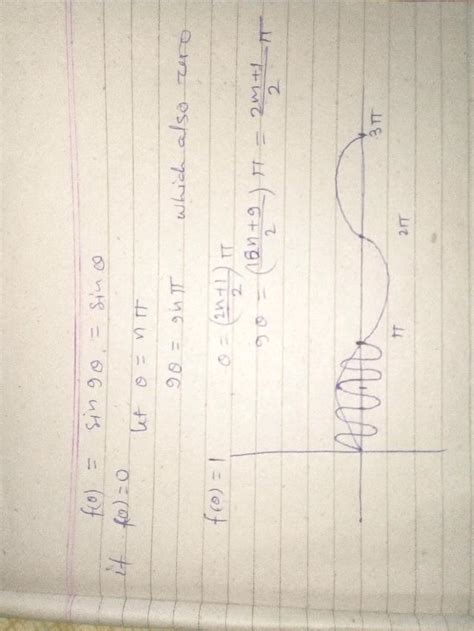 f(θ) = sin 9θ = sin θ
if f(θ) = 0
let θ = nπ
9θ = 9nπ which also zero
f(θ) = 1 θ = (2n+1)/2 π
9θ = (18n+9)/2 π = 2m+1/2 π
π 2π 3π